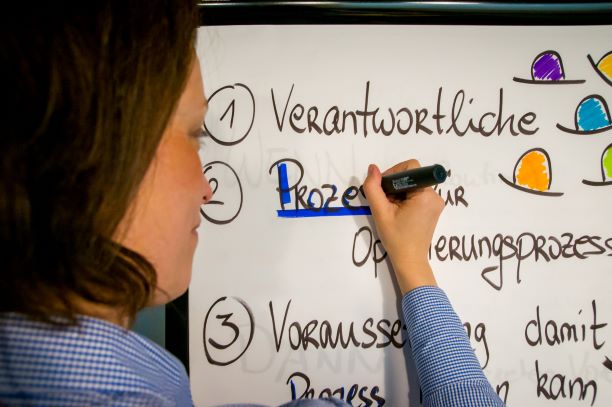 1 Verantwortliche
2 Proze für
Optimierungsprozess
3 Voraussetzung damit
Prozess kann